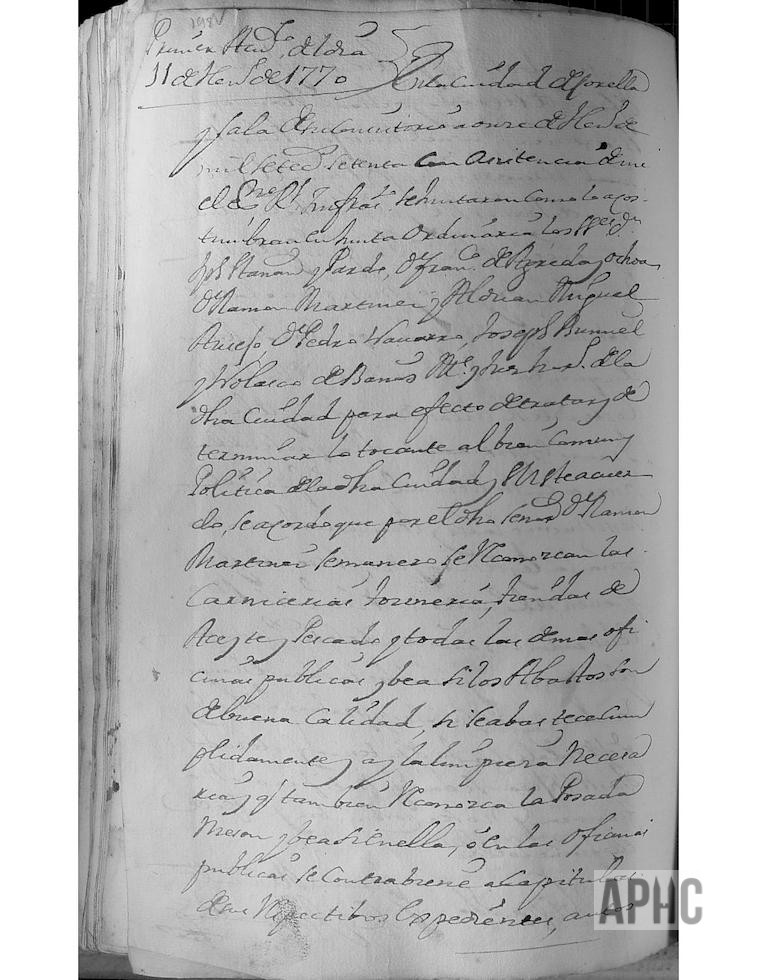 198v
Primera Acd.ª del dia
11 de Hen.º de 1770 En la Ciudad de Corella
y sala de su Consistorio a onze de Hen.º de
mil setec.s setenta con Asistencia de mi
el Ess.no R.l Infras.to se Juntaron como lo acos-
tumbran en Junta Ordinaria los SS.res d.n
Jph y Pardo, d.n Fran.co de Agreda y ochoa
D.n Ramon Martinez y Alduan Miguel
D.n Pedro Navarro, Joseph Bunuel
y Nolasco de Banos Al.e y de la
dha Ciudad para efecto de tratar y de
terminar lo tocante al bien Comun y
Politica de la dha Ciudad, y en este acuer
do, se acordo que por el dho senor D.n Ramon
Martinez semanero se Reconozcan las
Carnicerias tozineria, tiendas de
Aceyte y Pescado y todas las demas ofi
cinas publicas, y bea si los Abastos son
de buena Calidad, si se abastece cum
plidamente y ay la limpieza Necesa
ria, y q.e tambien Reconozca la Posada
Meson y bea si en ella, o en las oficinas
publicas se contrabiene a Capitulos
de sus Respectibos Expedientes, autos
APHC